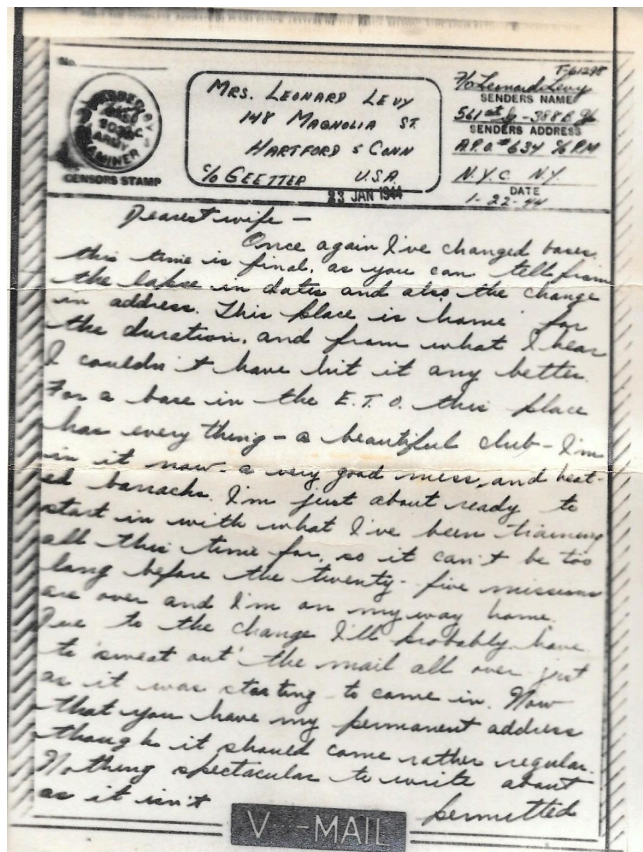 No.
T-61298
MRS. LEONARD LEVY
148 MAGNOLIA ST.
HARTFORD 5 CONN
c/o GEETTER U.S.A.
23 JAN 1944
ARMY
EXAMINER
CENSORS STAMP
F/O Leonard Levy
SENDERS NAME
561st
SENDERS ADDRESS
A.P.O. #634 % P.M.
N.Y.C. N.Y.
DATE
1-22-44
Dearest wife —
Once again I've changed bases.
this time is final, as you can tell from
the lapse in dates and also the change
in address. This place is 'home' for
the duration, and from what I hear
I couldn't have hit it any better.
For a base in the E.T.O. this place
has every thing — a beautiful club — I'm
in it now, a very good mess, and heat-
ed barracks. I'm just about ready to
start in with what I've been training
all this time for, so it can't be too
long before the twenty-five missions
are over and I'm on my way home.
Due to the change I'll probably have
to 'sweat out' the mail all over just
as it was starting to come in. Now
that you have my permanent address
though it should come rather regular.
Nothing spectacular to write about
as it isn't permitted
V--MAIL